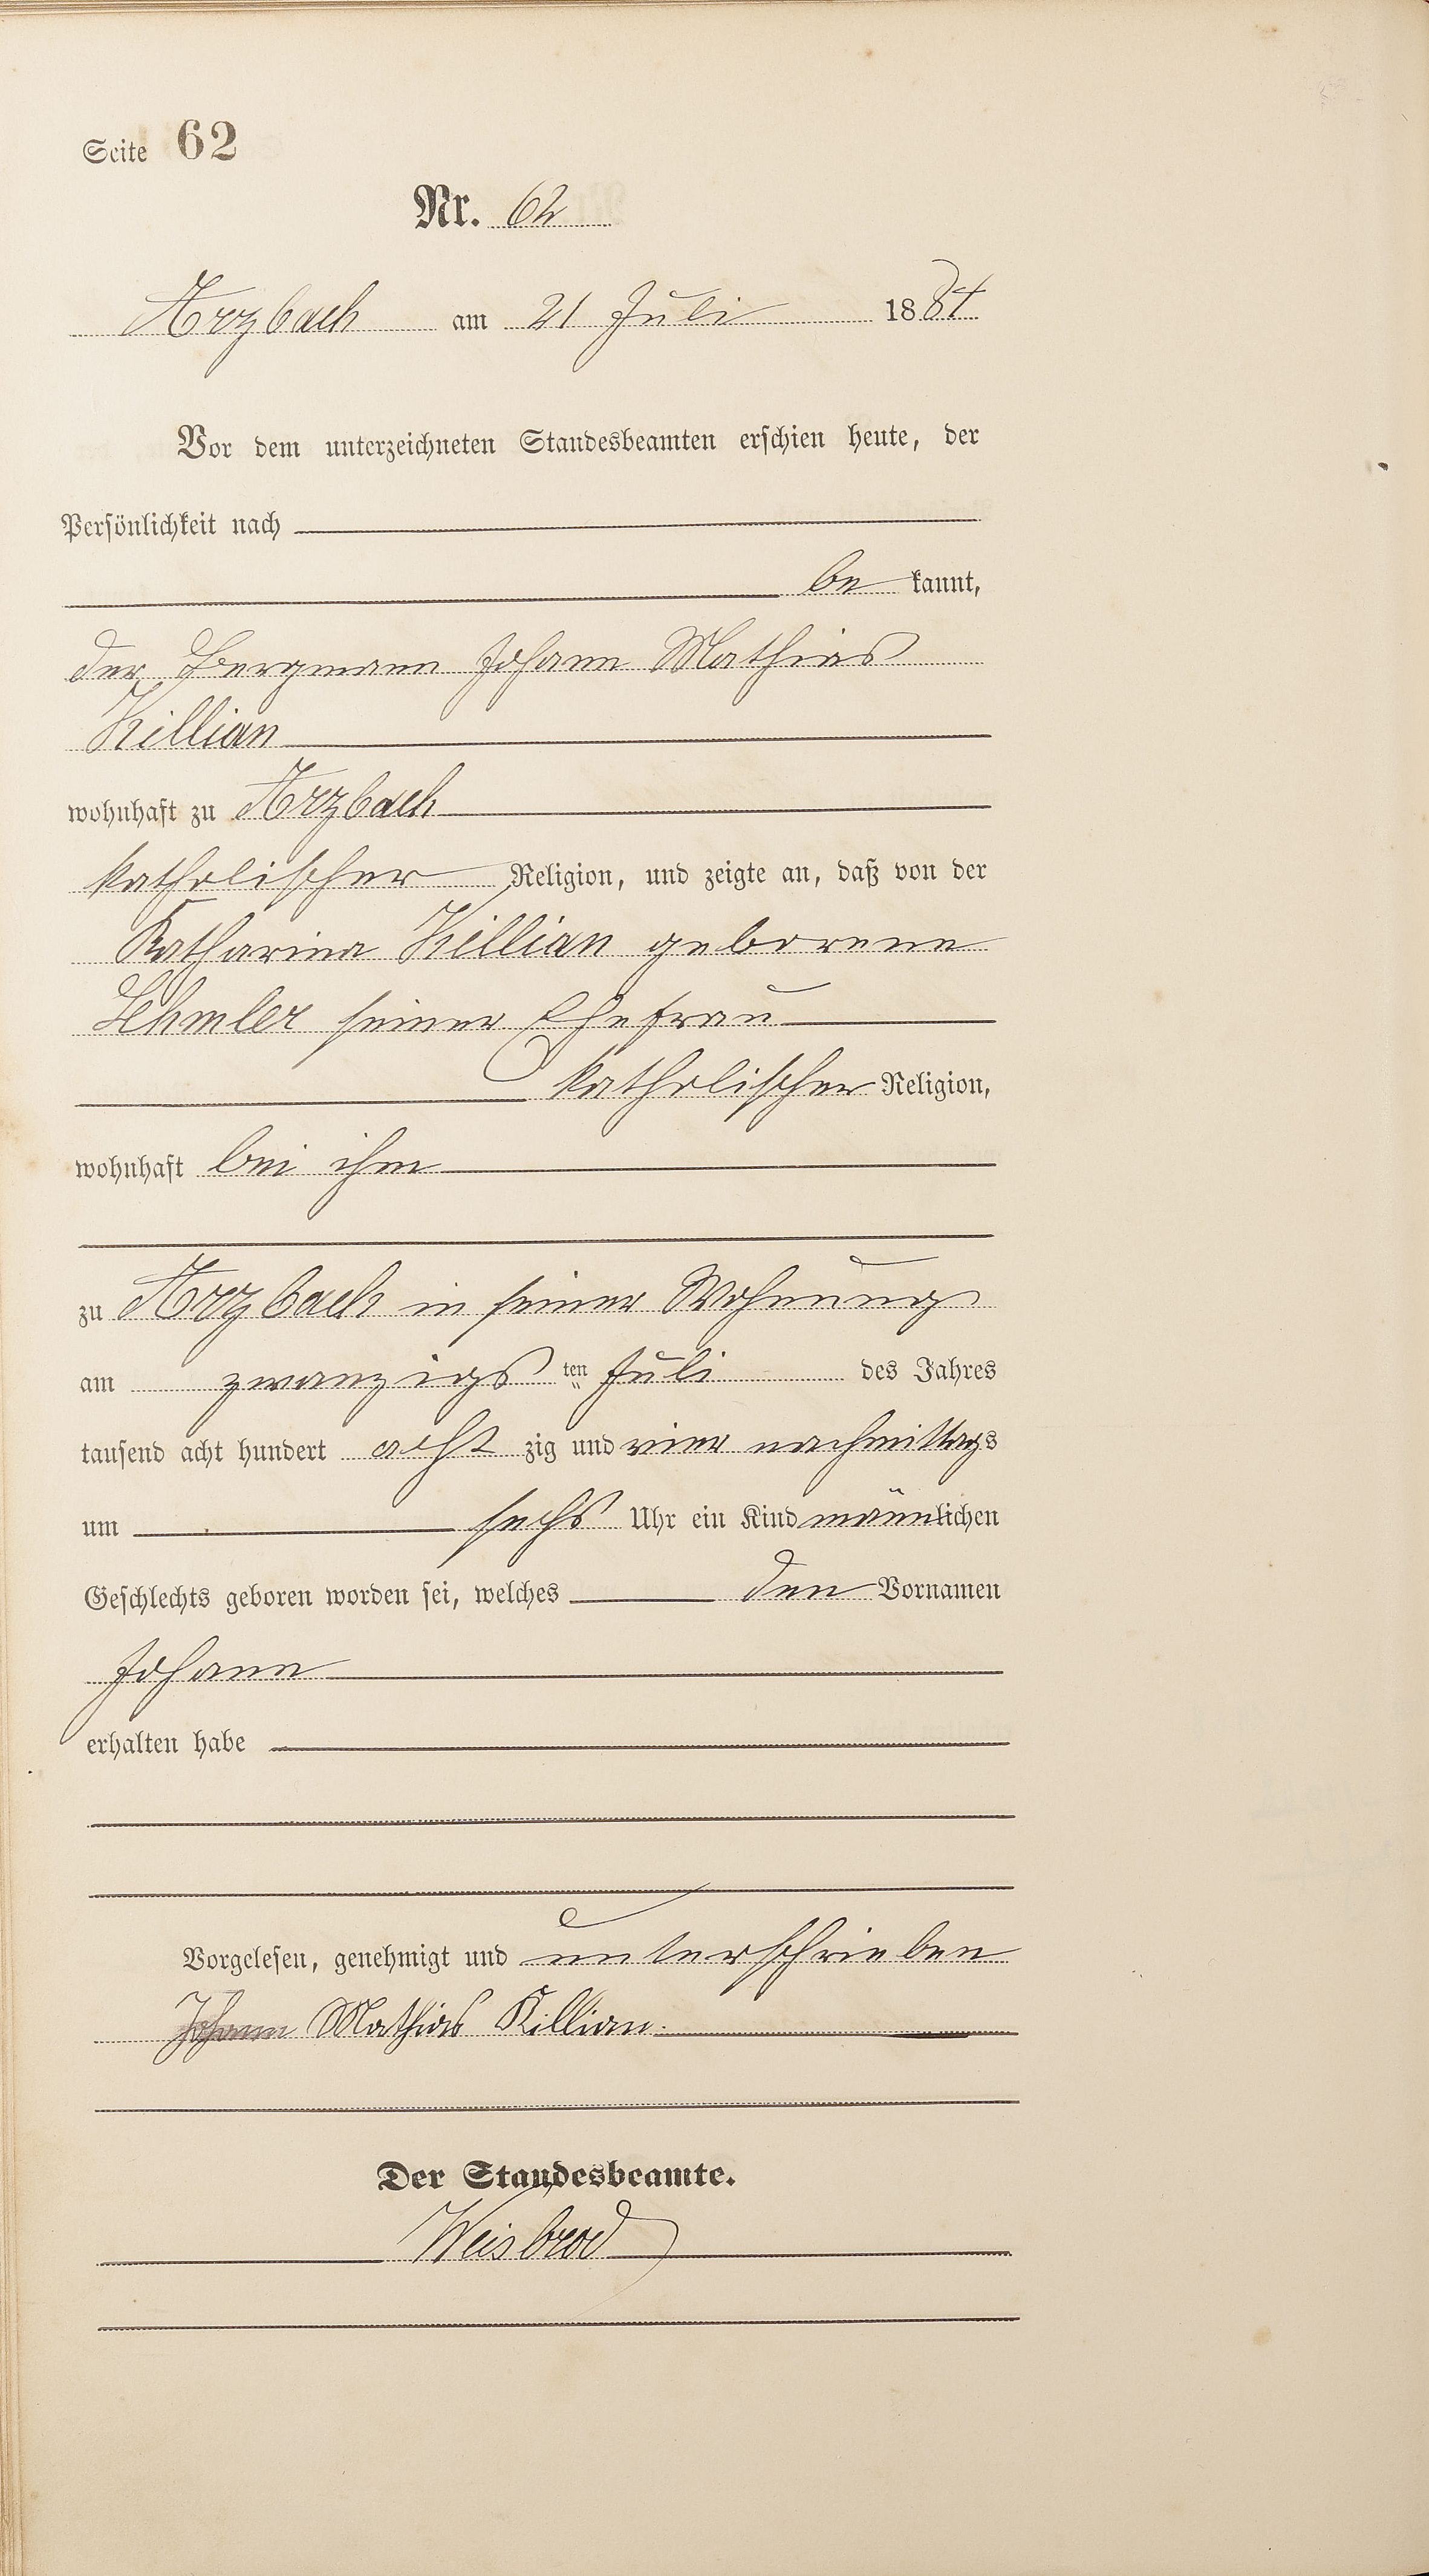 Seite 62
Nr. 62
Arzbach am 21 Juli 1884
Vor dem unterzeichneten Standesbeamten erschien heute, der
Persönlichkeit nach
be kannt,
der Bergmann Johann Mathias
Killian
wohnhaft zu Arzbach
katholischer Religion, und zeigte an, daß von der
Katharina Killian geborene
Lehmler seiner Ehefrau
katholischer Religion,
wohnhaft bei ihm
zu Arzbach in seiner Wohnung
am zwanzigs ten Juli des Jahres
tausend acht hundert acht zig und vier nachmittags
um sechs Uhr ein Kind männlichen
Geschlechts geboren worden sei, welches den Vornamen
Johann
erhalten habe
Vorgelesen, genehmigt und unterschrieben
Johann Mathias Killian.
Der Standesbeamte.
Weisbrod